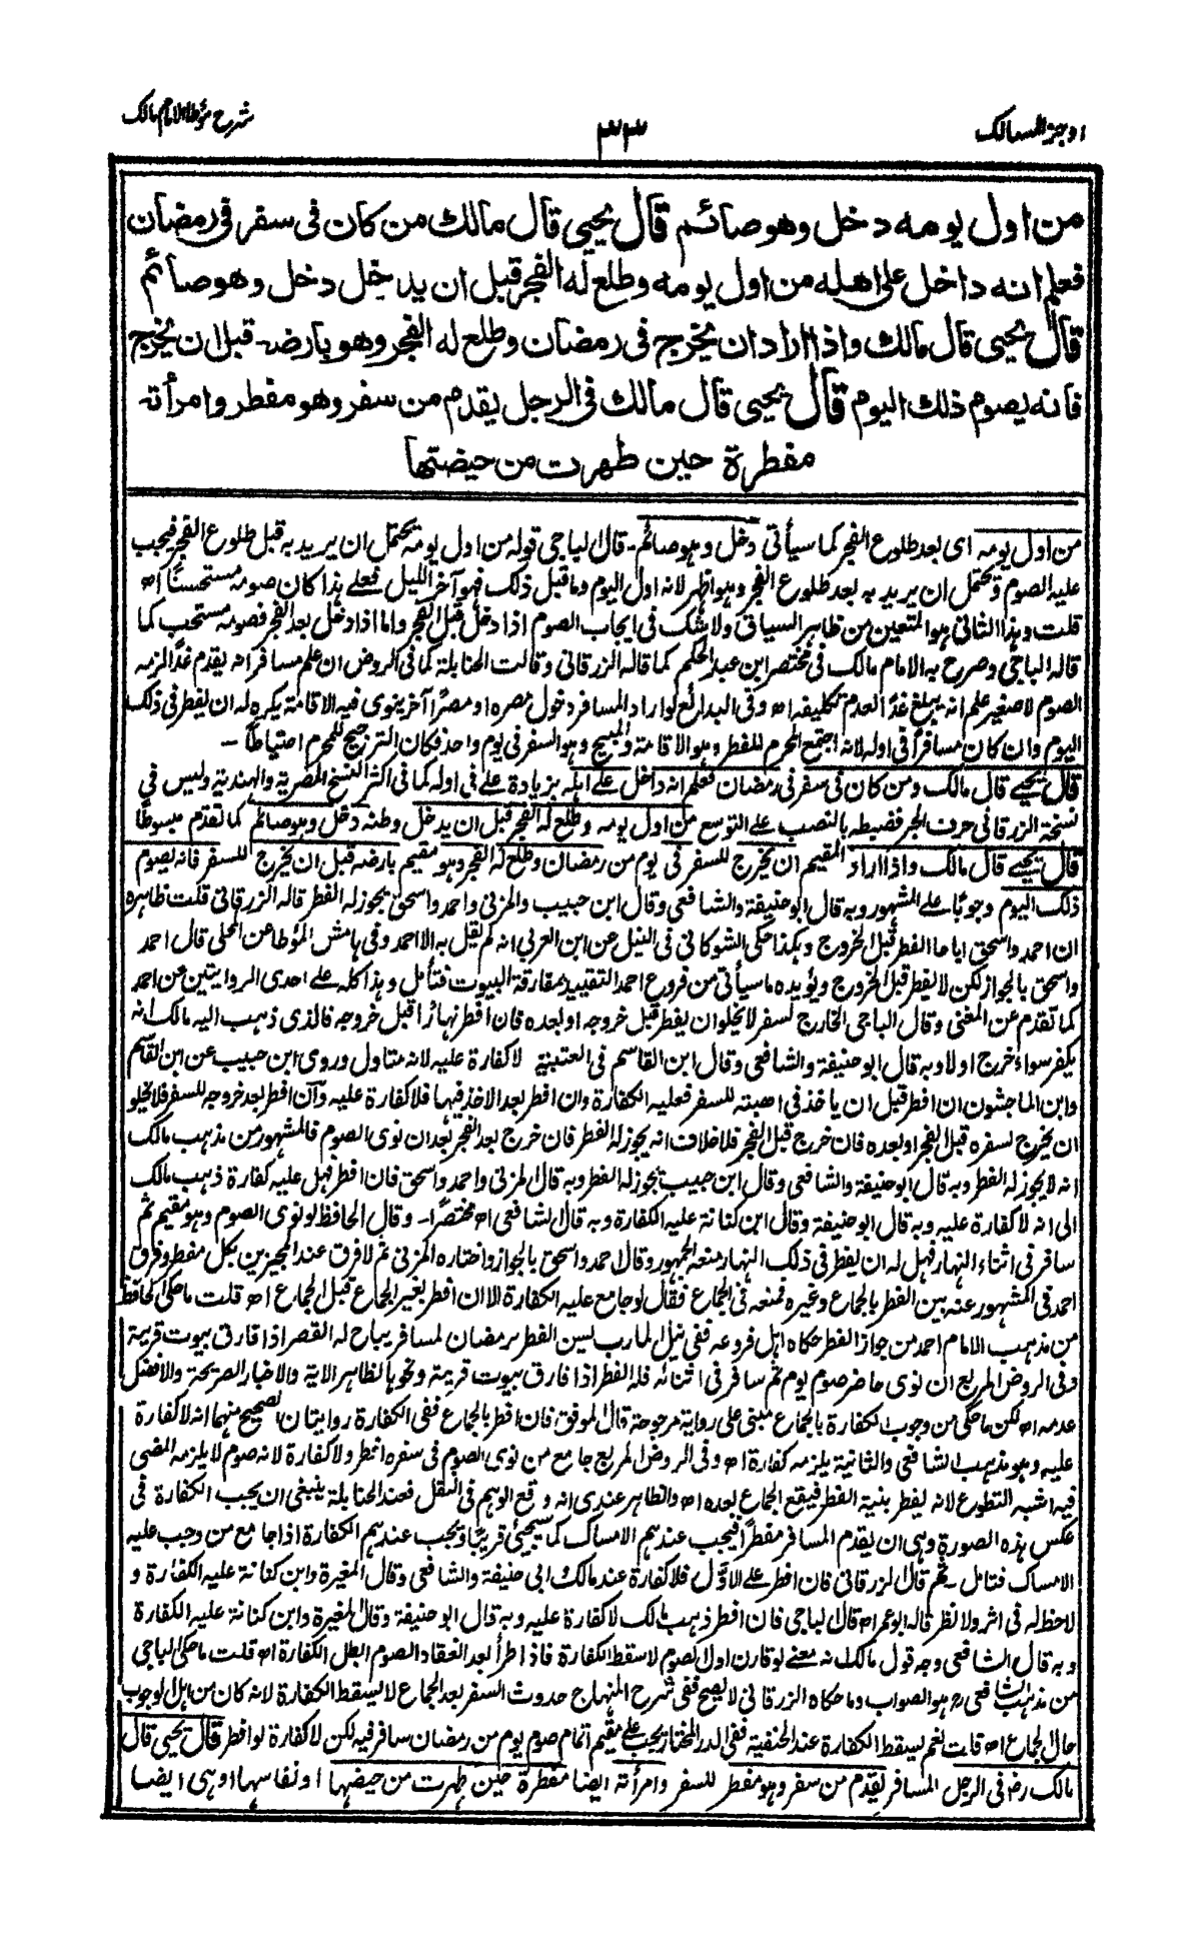 اوجز المسالك
٣٣
شرح مؤطا الامام مالك
من اول يومه دخل وهو صائم قال يحيى قال مالك من كان فى سفر فى رمضان
فعلم انه داخل على اهله من اول يومه وطلع له الفجر قبل ان يدخل دخل وهو صائم
قال يحيى قال مالك واذا اراد ان يخرج فى رمضان وطلع له الفجر وهو بارضه قبل ان يخرج
فانه يصوم ذلك اليوم قال يحيى قال مالك فى الرجل يقدم من سفر وهو مفطر وامرأته
مفطرة حين طهرت من حيضتها
من اول يومه اى بعد طلوع الفجر كما سيأتى دخل وهو صائم۔ قال الباجى قوله من اول يومه يحتمل ان يريد به قبل طلوع الفجر فيجب
عليه الصوم ويحتمل ان يريد به بعد طلوع الفجر وهو اظهر لانه اول اليوم وما قبل ذلك فهو آخر الليل فعلى هذا كان صومه مستحسنًا اھ
قلت وهذا الثانى هو المتعين من ظاهر السياق ولا شك فى ايجاب الصوم اذا دخل قبل الفجر واما اذا دخل بعد الفجر فصومه مستحب كما
قاله الباجى وصرح به الامام مالك فى مختصر ابن عبد الحكم كما قاله الزرقانى وقالت الحنابلة كما فى الروض ان علم مسافر انه يقدم غدًا لزمه
الصوم لا صغير علم انه يبلغ غدًا لعدم تكليفه اھ وفى البدائع لو اراد المسافر دخول مصره او مصرًا آخر ينوى فيه الاقامة يكره له ان يفطر فى ذلك
اليوم وان كان مسافرًا فى اوله لانه اجتمع المحرم للفطر وهو الاقامة والمبيح وهو السفر فى يوم واحد فكان الترجيح للمحرم احتياطًا ۔
قال يحيى قال مالك ومن كان فى سفر فى رمضان فعلم انه داخل على اهله بزيادة على فى اوله كما فى اكثر النسخ المصرية والهندية وليس فى
نسخة الزرقانى حرف الجر فضبطه بالنصب على التوسع من اول يومه وطلع له الفجر قبل ان يدخل وطنه دخل وهو صائم كما تقدم مبسوطًا
قال يحيى قال مالك واذا اراد المقيم ان يخرج للسفر فى يوم من رمضان وطلع له الفجر وهو مقيم بارضه قبل ان يخرج للسفر فانه يصوم
ذلك اليوم وجوبًا على المشهور وبه قال ابو حنيفة والشافعى وقال ابن حبيب والمزنى واحمد واسحق يجوز له الفطر قاله الزرقانى قلت ظاهره
ان احمد واسحق اباحا الفطر قبل الخروج وهكذا حكى الشوكانى فى النيل عن ابن العربى انه لم يقل به الا احمد وفى هامش المؤطا عن المحلى قال احمد
واسحق بالجواز لكن لا يفطر قبل الخروج ويؤيده ما سيأتى من فروع احمد التقييد بمفارقة البيوت فتأمل وهذا كله على احدى الروايتين عن احمد
كما تقدم عن المغنى وقال الباجى الخارج لسفر لا يخلو ان يفطر قبل خروجه او بعده فان افطر نهارًا قبل خروجه فالذى ذهب اليه مالك انه
يكفر سواء خرج او لا وبه قال ابو حنيفة والشافعى وقال ابن القاسم فى العتبية لا كفارة عليه لانه متاول وروى ابن حبيب عن ابن القاسم
وابن الماجشون ان افطر قبل ان ياخذ فى اهبته للسفر فعليه الكفارة وان افطر بعد الاخذ فيها فلا كفارة عليه وان افطر بعد خروجه للسفر فلا يخلو
ان يخرج لسفره قبل الفجر او بعده فان خرج قبل الفجر فلا خلاف انه يجوز له الفطر فان خرج بعد الفجر بعد ان نوى الصوم فالمشهور من مذهب مالك
انه لا يجوز له الفطر وبه قال ابو حنيفة والشافعى وقال ابن حبيب يجوز له الفطر وبه قال المزنى واحمد واسحق فان افطر فهل عليه كفارة ذهب مالك
الى انه لا كفارة عليه وبه قال ابو حنيفة وقال ابن كنانة عليه الكفارة وبه قال الشافعى اھ مختصرًا۔ وقال الحافظ لو نوى الصوم وهو مقيم ثم
سافر فى اثناء النهار فهل له ان يفطر فى ذلك النهار منعه الجمهور وقال احمد واسحق بالجواز واختاره المزنى ثم لا فرق عند المجيزين بكل مفطر وفرق
احمد فى المشهور عنه بين الفطر بالجماع وغيره فمنعه فى الجماع فقال لو جامع عليه الكفارة الا ان افطر بغير الجماع قبل الجماع اھ قلت ما حكى الحافظ
من مذهب الامام احمد من جواز الفطر حكاه اهل فروعه ففى نيل المارب يسن الفطر برمضان لمسافر يباح له القصر اذا فارق بيوت قرية
وفى الروض المربع ان نوى حاضر صوم يوم ثم سافر فى اثنائه فله الفطر اذا فارق بيوت قريته ونحوها لظاهر الاية والاخبار الصريحة والافضل
عدمه اھ لكن ما حكى من وجوب الكفارة بالجماع مبنى على رواية مرجوحة قال الموفق فان افطر بالجماع ففى الكفارة روايتان الصحيح منهما انه لا كفارة
عليه وهو مذهب الشافعى والثانية يلزمه كفارة اھ وفى الروض المربع جامع من نوى الصوم فى سفره افطر ولا كفارة لانه صوم لا يلزمه المضى
فيه اشبه التطوع لانه يفطر بنية الفطر فيقع الجماع بعده اھ والظاهر عندى انه وقع الوهم فى النقل فعند الحنابلة ينبغى ان يجب الكفارة فى
عكس هذه الصورة وهى ان يقدم المسافر مفطرًا فيجب عندهم الامساك كما سيجئ قريبًا ويجب عندهم الكفارة اذا جامع من وجب عليه
الامساك فتامل۔ ثم قال الزرقانى فان افطر على الاول فلا كفارة عند مالك وابى حنيفة والشافعى وقال المغيرة وابن كنانة عليه الكفارة و
لاحظ له فى اثر ولا نظر قاله ابو عمر اھ قال الباجى فان افطر ذهب مالك لا كفارة عليه وبه قال ابو حنيفة وقال المغيرة وابن كنانة عليه الكفارة
وبه قال الشافعى وجه قول مالك انه معنى لو قارن اول الصوم لاسقط الكفارة فاذا طرأ بعد انعقاد الصوم ابطل الكفارة اھ قلت ما حكى الباجى
من مذهب الشافعى رح هو الصواب وما حكاه الزرقانى لا يصح ففى شرح المنهاج حدوث السفر بعد الجماع لا يسقط الكفارة لانه كان من اهل الوجوب
حال الجماع اھ قلت نعم يسقط الكفارة عند الحنفية ففى الدر المختار يجب على مقيم اتمام صوم يوم من رمضان سافر فيه لكن لا كفارة لو افطر قال يحيى قال
مالك رض فى الرجل المسافر يقدم من سفر وهو مفطر للسفر وامرأته ايضا مفطرة حين طهرت من حيضها او نفاسها وهى ايضا